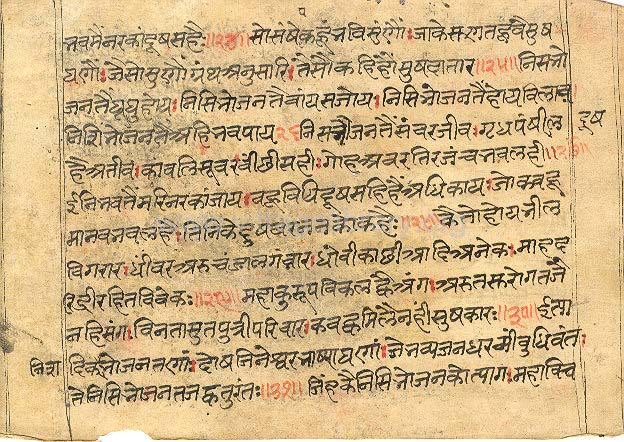 भवमैंनरकांदुषसहै॥२४॥सोसंषेकहूंनविसुंणौं।जाकेसरगतहूवैसुष
घणौं।जैसोसुणौंग्रंथअनुसारि।तैसौकहिहौंसुषदातार॥२५॥निसभो
जनतैंघूघूहोय।निसिभोजनतैंवांयसजोय।निसिभोजनतैंहोयविलाव।
निशिभोजनतैंअहिभवपाय२६निसभोजनतैंसंवरजीव।गृधपंषील
दुष
हैअतीव।कावलिसूवरवीछीसही।गोहअवरतिरजंचभवलही॥२७॥
ईनिभवतैंमरिनरकांजाय।वहुविधिदुषसहिहैंअधिकाय।जोकबहू
मानवभवलहै।तौनिकेदुषबहुजनकाकहै॥२८॥कैतोहोयभील
विगरार।धीवरअरुचंडालगवार।धोवीकाछीआदिअनेक।माहद
रिद्रीरहितविवेक॥२९॥महाकुरूपविकलह्वैअंग।अरुतसरोगतजै
नहिसंग।विनतासुतपुत्रीपरिवार।कवहूमिलैनंहीसुषकार॥३०॥ईत्या
निशि
दिकभोजनतणौं।दोषजिनेश्वरभाष्याघणौं।जेभव्यजनधरमीवुधिवंत।
तेनिसिभोजनतजहुतुरंत॥३१॥जिहकैनिसिभोजनकोत्याग।महाववि